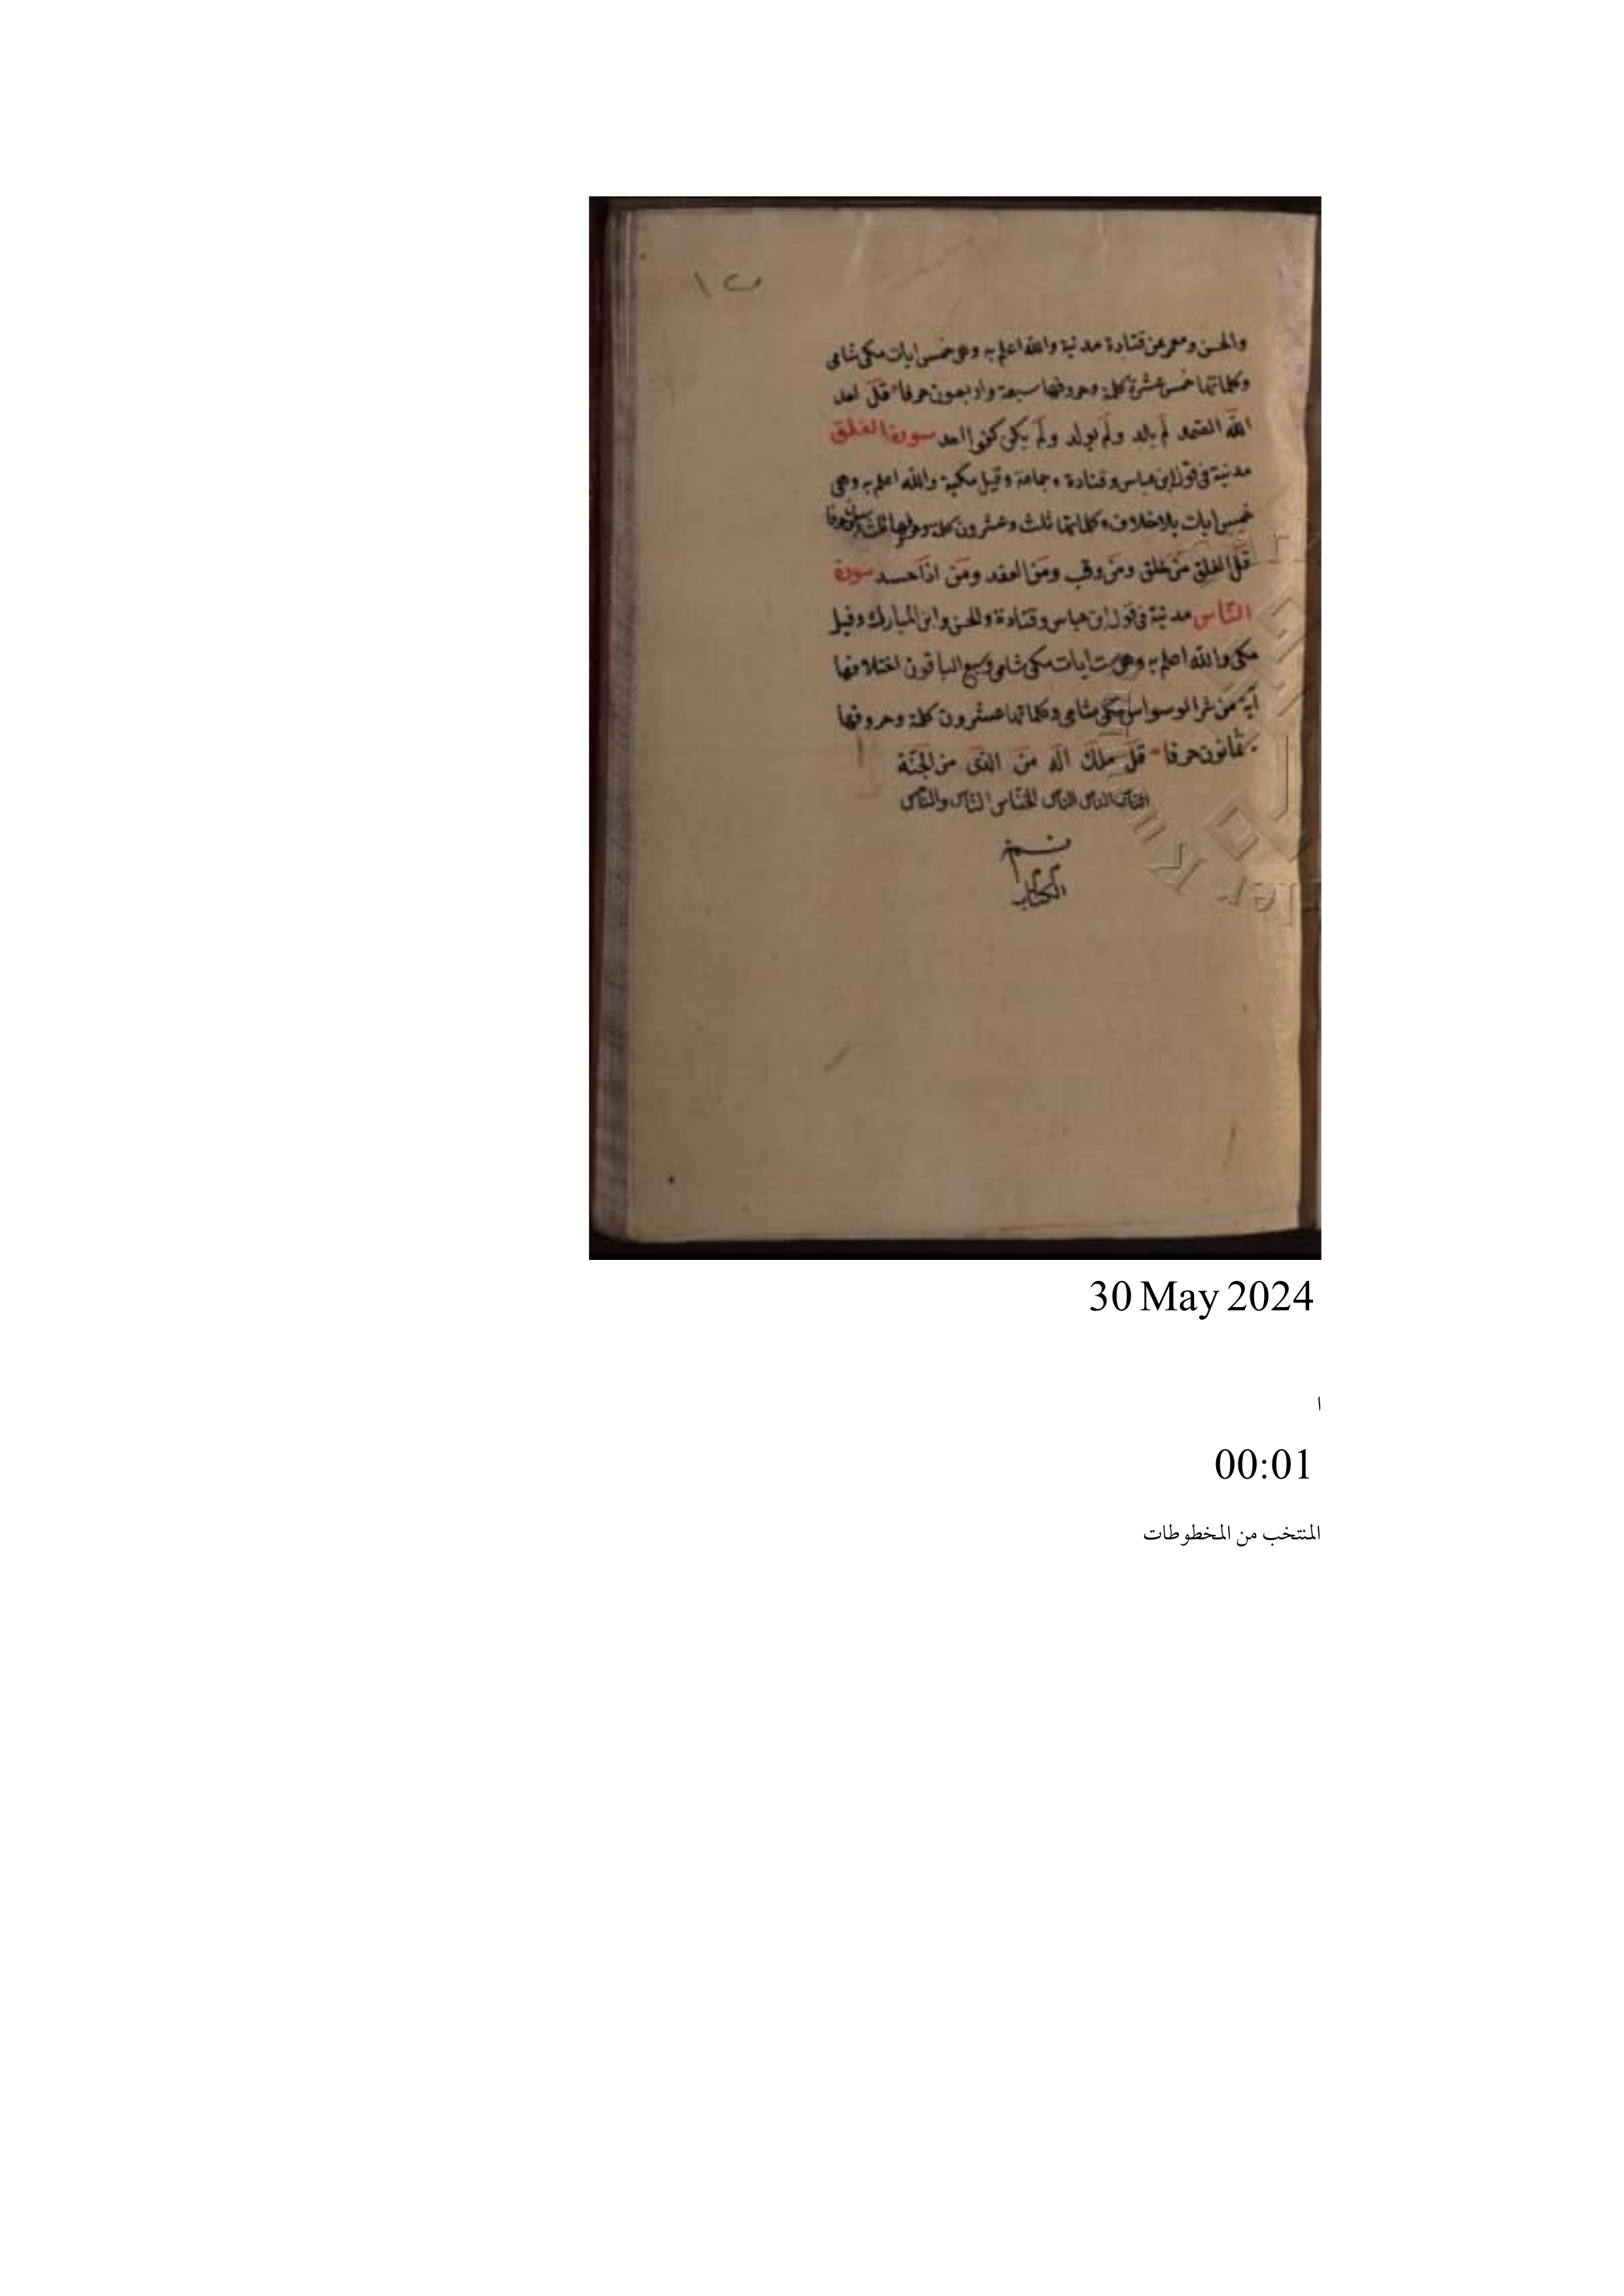 والحسن ومعمر عن قتادة مدنية والله اعلم به وهى خمس ايات مكى شامى
وكلماتها خمس عشرة كلمة وحروفها سبعة واربعون حرفا قل احد
الله الصمد لم يلد ولم يولد ولم يكن كفوا احد سورة الفلق
مدنية فى قول ابن عباس وقتادة وجماعة وقيل مكية والله اعلم به وهى
خمس ايات بلا خلاف وكلماتها ثلث وعشرون كلمة وحروفها
قل الفلق من خلق ومن وقب ومن العقد ومن اذا حسد سورة
الناس مدنية فى قول ابن عباس وقتادة والحسن وابن المبارك وقيل
مكى والله اعلم به وهى ست ايات مكى شامى وسبع الباقون اختلافها
آية من شر الوسواس مكى شامى وكلماتها عشرون كلمة وحروفها
ثمانون حرفا قل ملك اله من الذى من الجنة
الناس الناس الناس الخناس الناس والناس
تم
الكتاب
30 May 2024
ا
00:01
المنتخب من المخطوطات